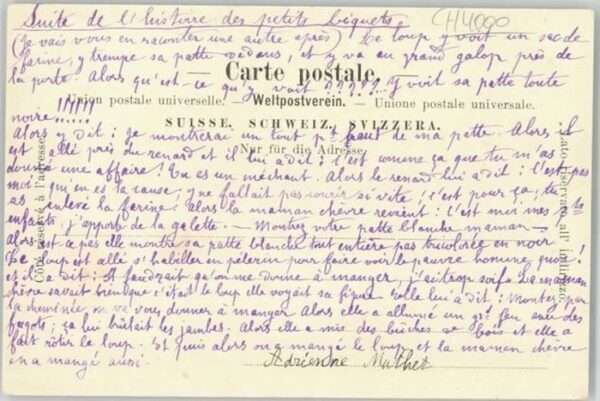 Suite de l'histoire des petits biquets
CH4000
(Je vais vous en raconter une autre après) Le loup y voit un sac de
farine, y trempe sa patte dedans, et y va au grand galop près de
la porte. Alors qu'est-ce qu'y voit ????? Y voit sa patte toute
Carte postale.
Union postale universelle. — Weltpostverein. — Unione postale universale.
noire !!!!!
SUISSE. SCHWEIZ. SVIZZERA.
Alors y dit : je montrerai un tout pt bout de ma patte. Alors il
Nur für die Adresse.
Côté réservé à l'adresse.
Lato riservato all'indirizzo.
est allé près du renard et il lui a dit : c'est comme ça que tu m'as
donné une affaire ! Tu es un méchant. Alors le renard lui a dit : c'est pas
moi qui en es la cause, y ne fallait pas courir si vite ; c'est pour ça, tu
as enlevé la farine ! Alors la maman chèvre revient : C'est moi mes pts
enfants, j'apporte de la galette. — Montrez votre patte blanche maman —
Alors elle montra sa patte blanche tout entière pas tricolorée en noir
Le loup est allé s'habiller en pélerin pour faire voir le pauvre homme, quoi !
et il a dit : Il faudrait qu'on me donne à manger, j'ai trop soif. La maman
chèvre savait bien que c'était le loup elle voyait sa figure elle lui a dit : Montez par
la cheminée, on va vous donner à manger Alors elle a allumé un gd feu avec des
fagots ; ça lui brûlait les jambes. Alors elle a mis des bûches de bois et elle a
fait rôtir le loup. Et puis alors on a mangé le loup et la maman chèvre
en a mangé aussi.
Adrienne Mathet